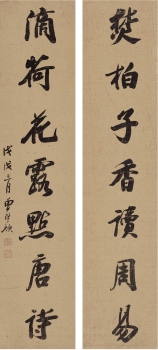 焚柏子香讀周易
滴荷花露點唐詩
戊戌